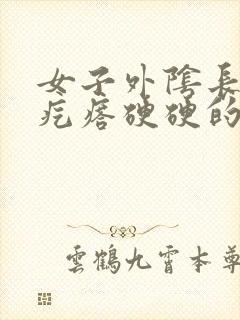 女子外陰長
疙瘩硬硬的
雲鶴九霄本尊